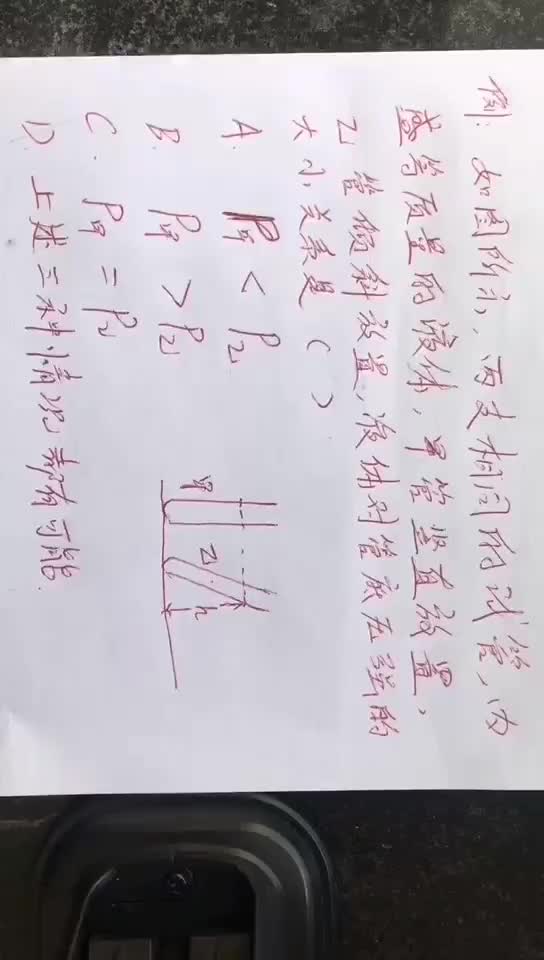 例: 如图所示, 两支相同的试管, 内
盛等质量的液体, 甲管竖直放置,
乙管倾斜放置, 液体对管底压强的
大小关系是 ( )
A. P甲 < P乙
B. P甲 > P乙
C. P甲 = P乙
D 上述三种情况都有可能.
甲
乙
h